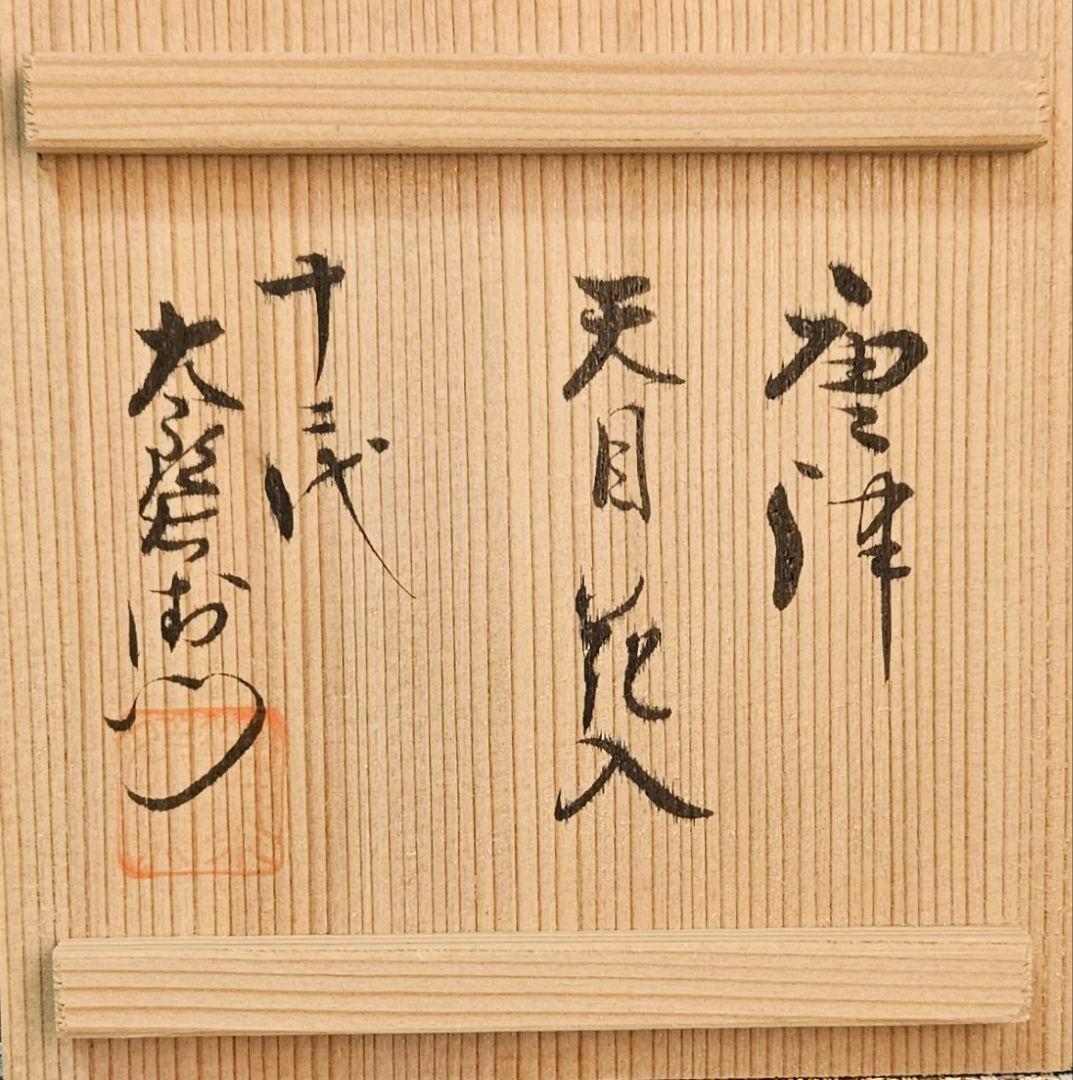 唐津
天目花入
十三代
太郎右衛門